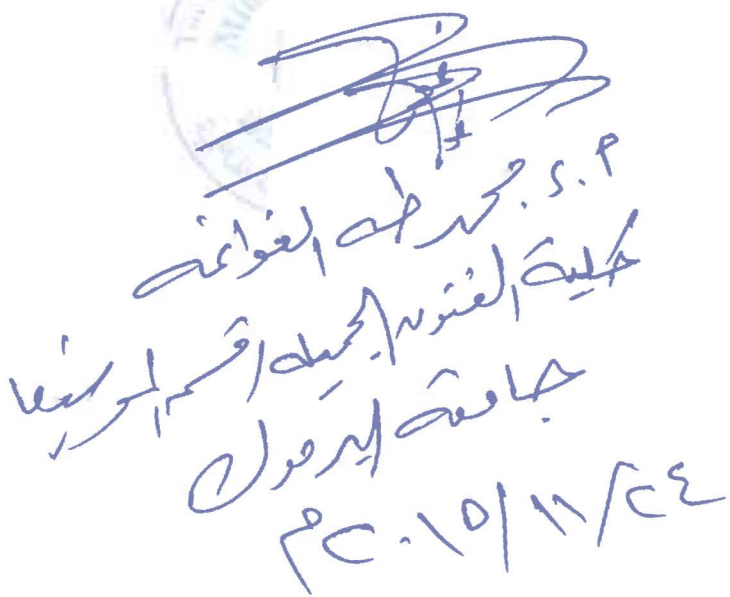 م.د. محمد طه الغوانمه
كلية الفنون الجميله / قسم الموسيقا
جامعة اليرموك
٢٤/١١/٢٠١٥م